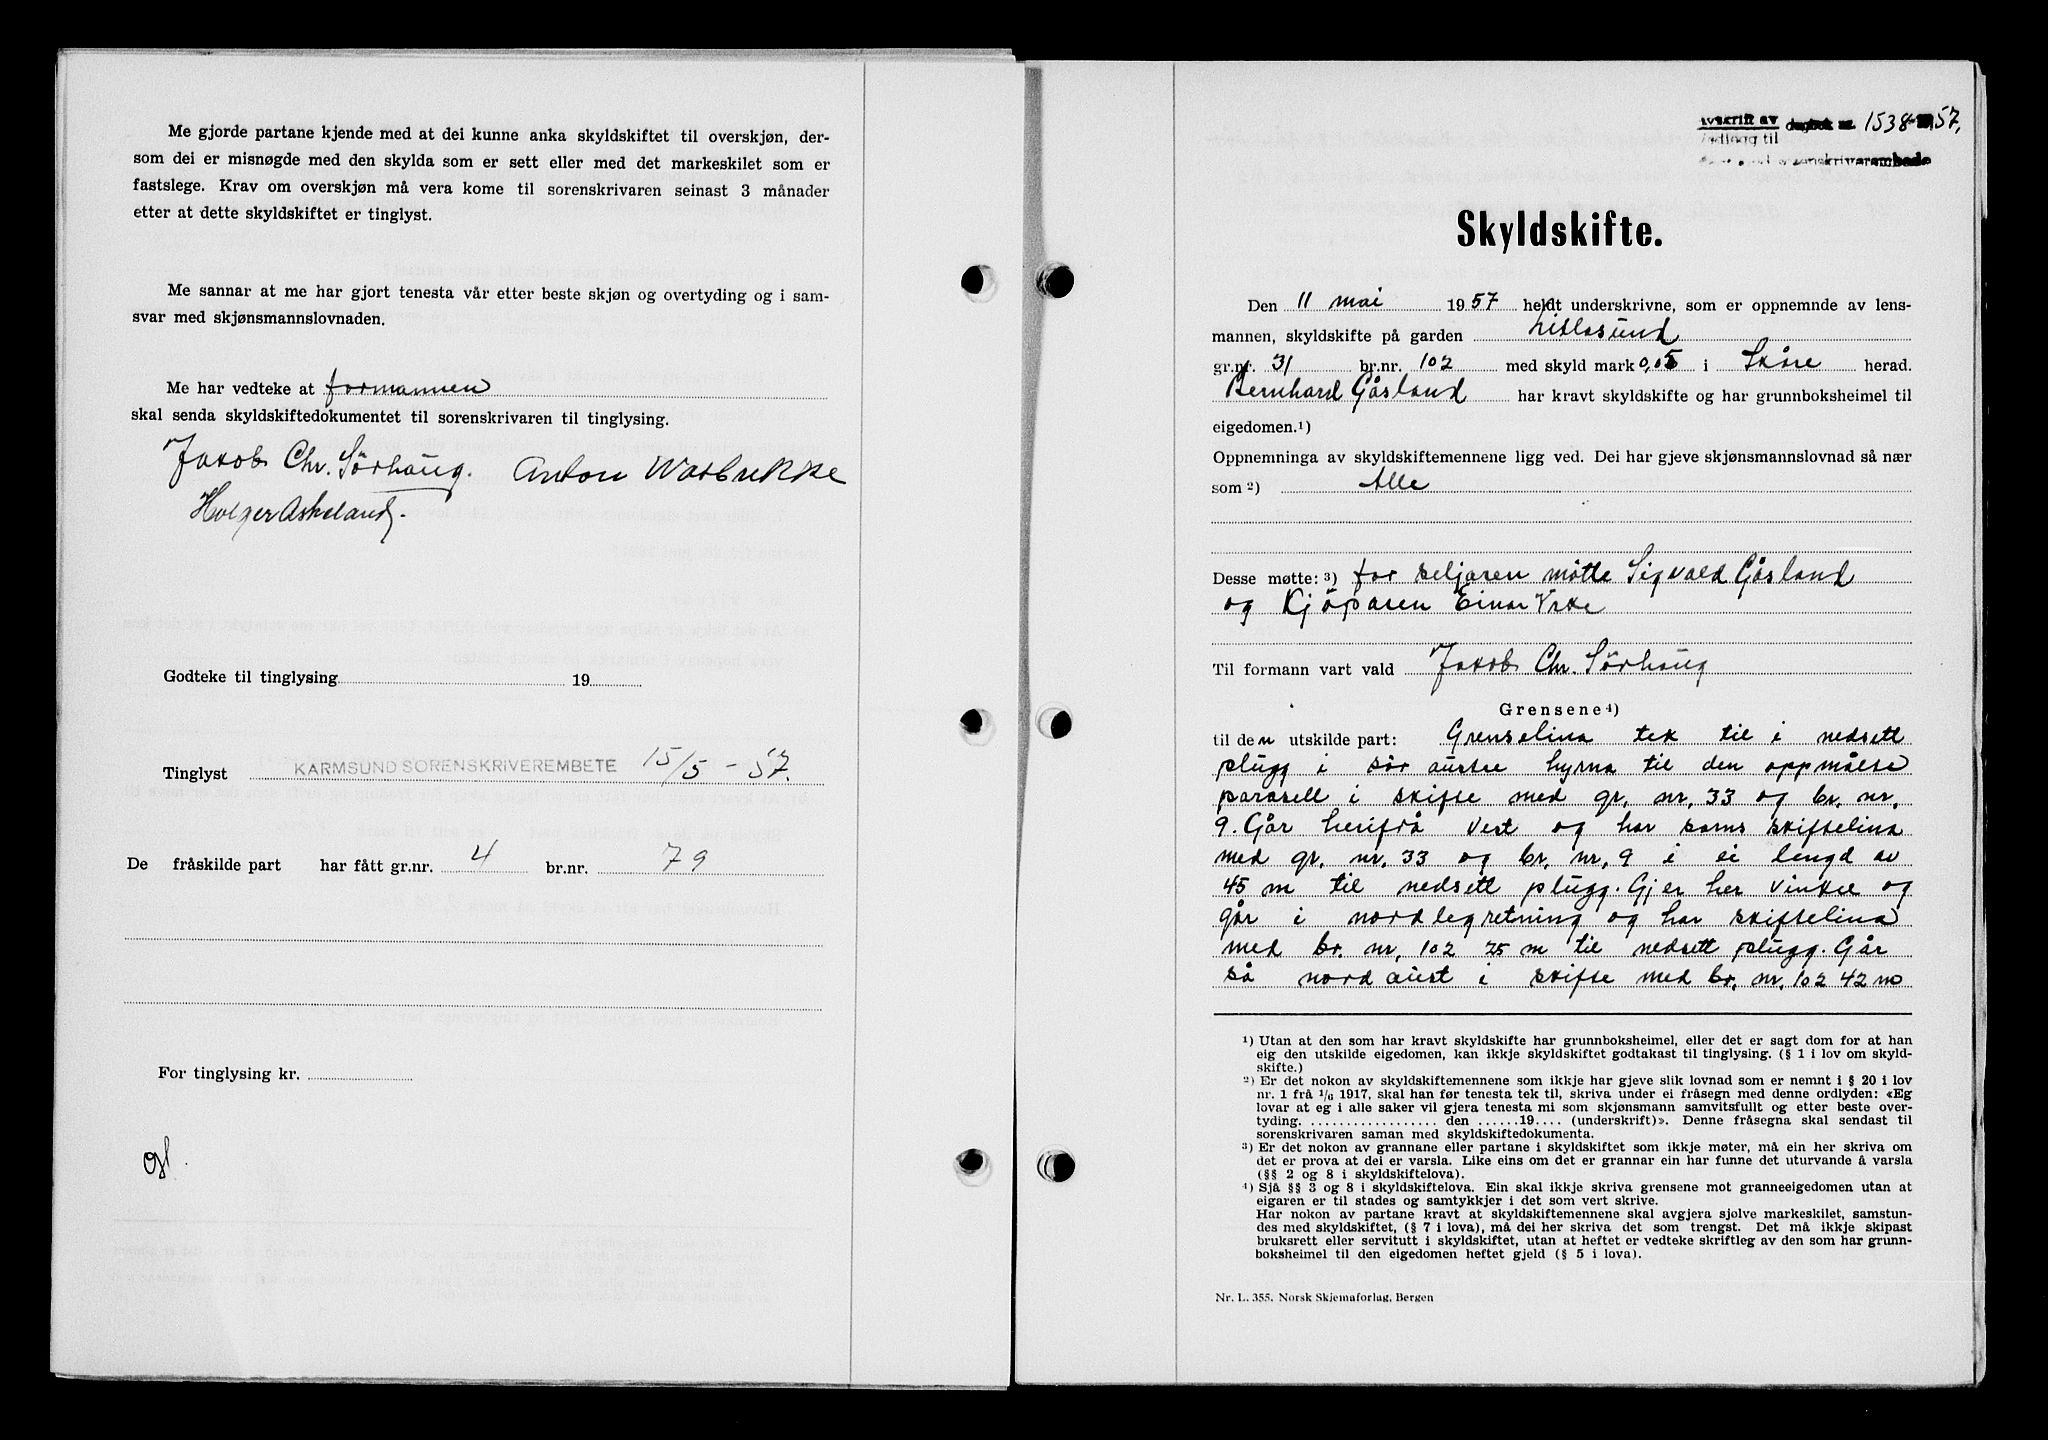 Me gjorde partane kjende med at dei kunne anka skyldskiftet til overskjøn, der-
som dei er misnøgde med den skylda som er sett eller med det markeskilet som er
fastslege. Krav om overskjøn må vera kome til sorenskrivaren seinast 3 månader
etter at dette skyldskiftet er tinglyst.
Me sannar at me har gjort tenesta vår etter beste skjøn og overtyding og i sam-
svar med skjønsmannslovnaden.
Me har vedteke at formannen
skal senda skyldskiftedokumentet til sorenskrivaren til tinglysing.
Jakob Chr. Sørhaug. Anton
Holger Askeland.
Godteke til tinglysing 19
Tinglyst KARMSUND SORENSKRIVEREMBETE 15/5 - 57.
De fråskilde part har fått gr.nr. 4 br.nr. 79
For tinglysing kr.
gl.
Avskrift av dagbok nr. 1538 - 1957,
Vedlegg til
sorenskriverembede
Skyldskifte.
Den 11 mai 1957 heldt underskrivne, som er oppnemnde av lens-
mannen, skyldskifte på garden Litlasund
gr.nr. 31 br.nr. 102 med skyld mark 0,05 i Skåre herad.
Bernhard Gåsland har kravt skyldskifte og har grunnboksheimel til
eigedomen.¹)
Oppnemninga av skyldskiftemennene ligg ved. Dei har gjeve skjønsmannslovnad så nær
som ²) Alle
Desse møtte: ³) for seljaren møtte Sigvald Gåsland
og Kjöparen Einar Vike
Til formann vart vald Jakob Chr. Sørhaug
Grensene ⁴)
til den utskilde part: Grenselina tek til i nedsett
plugg i sør austre hyrna til den oppmålte
parasell i skifte med gr. nr. 33 og br. nr.
9. Går herifrå vest og har sams skiftelina
med gr. nr. 33 og br. nr. 9 i ei lengd av
45 m til nedsett plugg. Gjer her vinkel og
går i nordleg retning og har skiftelina
med br. nr. 102 25 m til nedsett plugg. Går
så nord aust i skifte med br. nr. 102 42 m
¹) Utan at den som har kravt skyldskifte har grunnboksheimel, eller det er sagt dom for at han
eig den utskilde eigedomen, kan ikkje skyldskiftet godtakast til tinglysing. (§ 1 i lov om skyld-
skifte.)
²) Er det nokon av skyldskiftemennene som ikkje har gjeve slik lovnad som er nemnt i § 20 i lov
nr. 1 frå 1/6 1917, skal han før tenesta tek til, skriva under ei fråsegn med denne ordlyden: «Eg
lovar at eg i alle saker vil gjera tenesta mi som skjønsmann samvitsfullt og etter beste over-
tyding. .................... den ......19.... (underskrift)». Denne fråsegna skal sendast til
sorenskrivaren saman med skyldskiftedokumenta.
³) Er det nokon av grannane eller partane i skyldskiftet som ikkje møter, må ein her skriva om
det er prova at dei er varsla. Like eins om det er grannar ein har funne det uturvande å varsla
(§§ 2 og 8 i skyldskiftelova).
⁴) Sjå §§ 3 og 8 i skyldskiftelova. Ein skal ikkje skriva grensene mot granneeigedomen utan at
eigaren er til stades og samtykkjer i det som vert skrive.
Har nokon av partane kravt at skyldskiftemennene skal avgjera sjølve markeskilet, samstun-
des med skyldskiftet, (§ 7 i lova), må dei her skriva det som trengst. Det må ikkje skipast
bruksrett eller servitutt i skyldskiftet, utan at heftet er vedteke skriftleg av den som har grunn-
boksheimel til den eigedomen heftet gjeld (§ 5 i lova).
Nr. L. 355. Norsk Skjemaforlag, Bergen